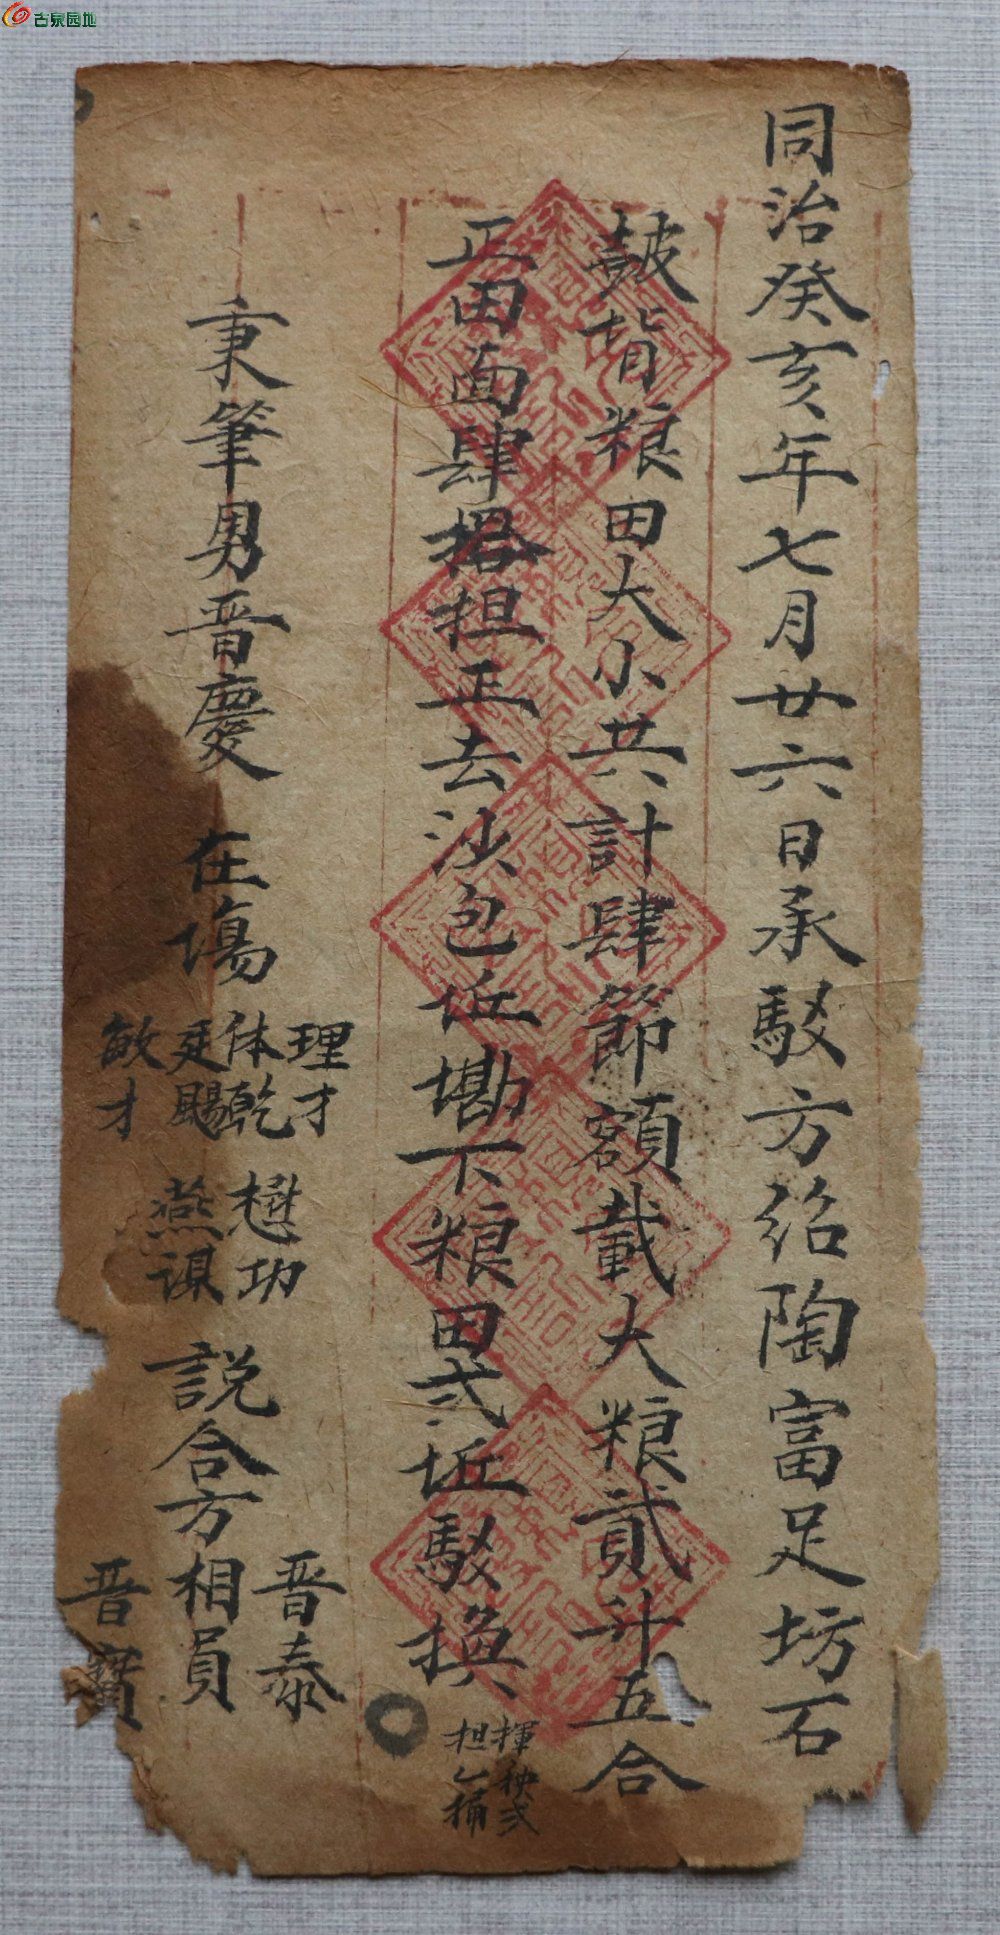 古泉园地
同治癸亥年七月廿六日承駁方绍陶富足坊石
皷背粮田大小共計肆節額載大粮貳斗五合
正田面肆拾担正去沙包近墈下粮田弍坵駁換
揮秧弍
担乄桶
秉筆男晋慶 在塲
理才
体乾 懋功
廷颺 燕謀
敏才
説合方相員
晋泰
晋寶